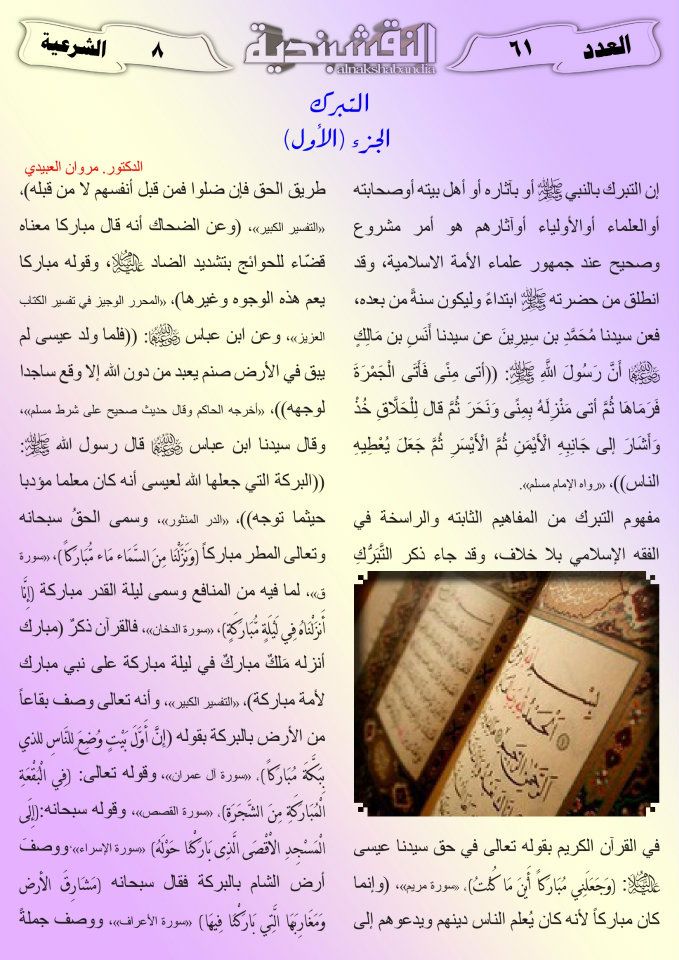 العدد
٦١
النقشبندية
alnakshabandia
٨
الشرعية
التبرك
الجزء (الأول)
الدكتور. مروان العبيدي
إن التبرك بالنبي ﷺ أو بآثاره أو أهل بيته أوصحابته
أوالعلماء أوالأولياء أوآثارهم هو أمر مشروع
وصحيح عند جمهور علماء الأمة الاسلامية، وقد
انطلق من حضرته ﷺ ابتداءً وليكون سنةً من بعده،
فعن سيدنا مُحَمَّدِ بن سِيرِينَ عن سيدنا أَنَسِ بن مَالِكٍ
رضي الله عنه أَنَّ رَسُولَ اللَّهِ ﷺ: ((أتى مِنًى فَأَتَى الْجَمْرَةَ
فَرَمَاهَا ثُمَّ أتى مَنْزِلَهُ بِمِنًى وَنَحَرَ ثُمَّ قال لِلْحَلَّاقِ خُذْ
وَأَشَارَ إلى جَانِبِهِ الْأَيْمَنِ ثُمَّ الْأَيْسَرِ ثُمَّ جَعَلَ يُعْطِيهِ
الناس))، «رواه الإمام مسلم».
مفهوم التبرك من المفاهيم الثابته والراسخة في
الفقه الإسلامي بلا خلاف، وقد جاء ذكر التَّبَرُّكِ
في القرآن الكريم بقوله تعالى في حق سيدنا عيسى
عليه السلام: (وَجَعَلَنِي مُبَارَكاً أَيْنَ مَا كُنْتُ)، «سورة مريم»، (وإنما
كان مباركاً لأنه كان يُعلم الناس دينهم ويدعوهم إلى
طريق الحق فإن ضلوا فمن قبل أنفسهم لا من قبله)،
«التفسير الكبير»، (وعن الضحاك أنه قال مباركا معناه
قضّاء للحوائج بتشديد الضاد عليه السلام، وقوله مباركا
يعم هذه الوجوه وغيرها)، «المحرر الوجيز في تفسير الكتاب
العزيز»، وعن ابن عباس رضي الله عنه: ((فلما ولد عيسى لم
يبق في الأرض صنم يعبد من دون الله إلا وقع ساجدا
لوجهه))، «أخرجه الحاكم وقال حديث صحيح على شرط مسلم»،
وقال سيدنا ابن عباس رضي الله عنه قال رسول الله ﷺ:
((البركة التي جعلها الله لعيسى أنه كان معلما مؤدبا
حيثما توجه))، «الدر المنثور»، وسمى الحقُ سبحانه
وتعالى المطر مباركاً (وَنَزَّلْنَا مِنَ السَّمَاء مَاء مُّبَارَكاً)، «سورة
ق»، لما فيه من المنافع وسمى ليلة القدر مباركة (إِنَّا
أَنزَلْنَاهُ فِي لَيْلَةٍ مُّبَارَكَةٍ)، «سورة الدخان»، فالقرآن ذكرٌ (مبارك
أنزله مَلكٌ مباركٌ في ليلة مباركة على نبي مبارك
لأمة مباركة)، «التفسير الكبير»، وأنه تعالى وصف بقاعاً
من الأرض بالبركة بقوله (إِنَّ أَوَّلَ بَيْتٍ وُضِعَ لِلنَّاسِ للذي
بِبَكَّةَ مُبَارَكاً)، «سورة آل عمران»، وقوله تعالى: (فِي الْبُقْعَةِ
الْمُبَارَكَةِ مِنَ الشَّجَرَةِ)، «سورة القصص»، وقوله سبحانه:(إِلَى
الْمَسْجِدِ الْأَقْصَى الَّذِي بَارَكْنَا حَوْلَهُ) «سورة الإسراء»،ووصفَ
أرض الشام بالبركة فقال سبحانه (مَشَارِقَ الأَرْضِ
وَمَغَارِبَهَا الَّتِي بَارَكْنَا فِيهَا) «سورة الأعراف»، ووصف جملةً